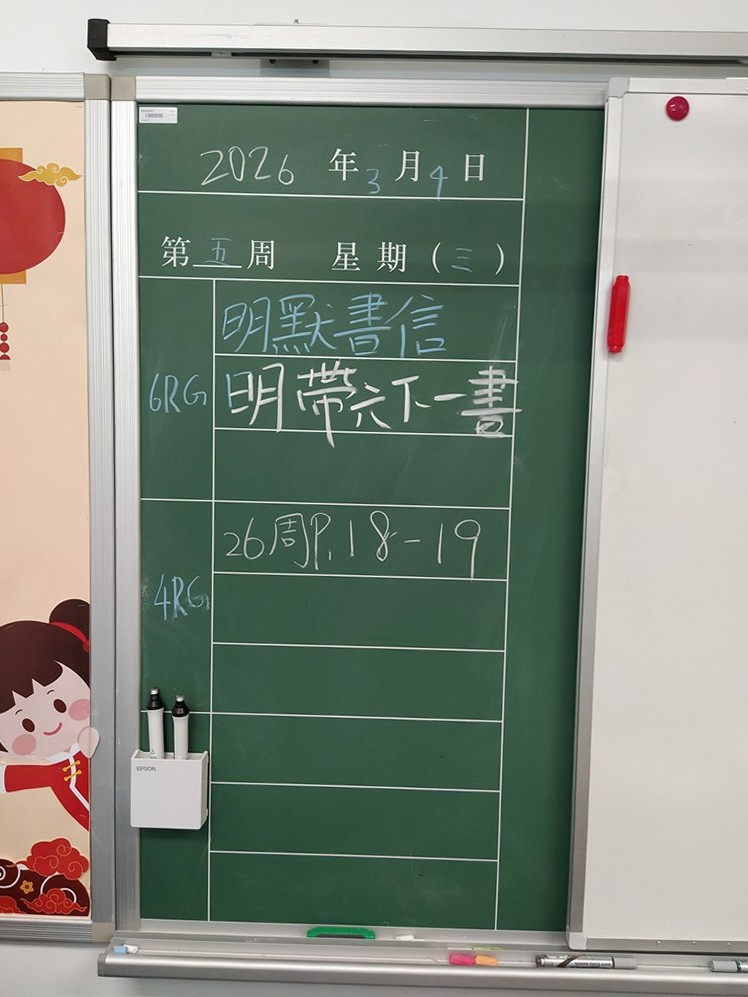 2026 年 3 月 4 日
第 五 周 星期（三）
明默書信
6RG 明帶六下一書
26周P.18-19
4RG
EPSON